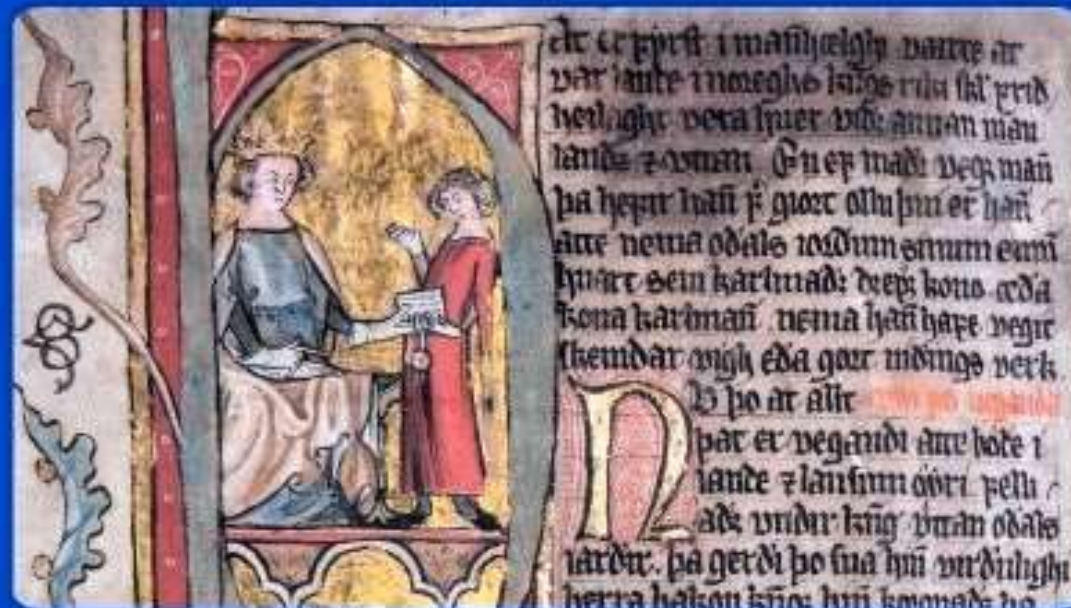 er fyrst i mannhælghi varre at
var lande i noreghs kngs riki skl frid
heilaghr vera huer vid annan man
landz ⁊ vttan En ef madr vegr mañ
þa hefir hañ f giort ollu þui er hañ
atte nema odals iordum sinum eiñ
huart sem karlmadr drepr konu æda
kona karlmañ nema hañ hafe vegit
skemdar vigh eda gort nidings verk
N V þo at allt
þat er vegandi atte bæde i
lande ⁊ lausum œyri felli
adr vndir kng vttan odals
iardir. þa gerdi þo sua hiñ virdulighi
herra hakon kngr hiñ